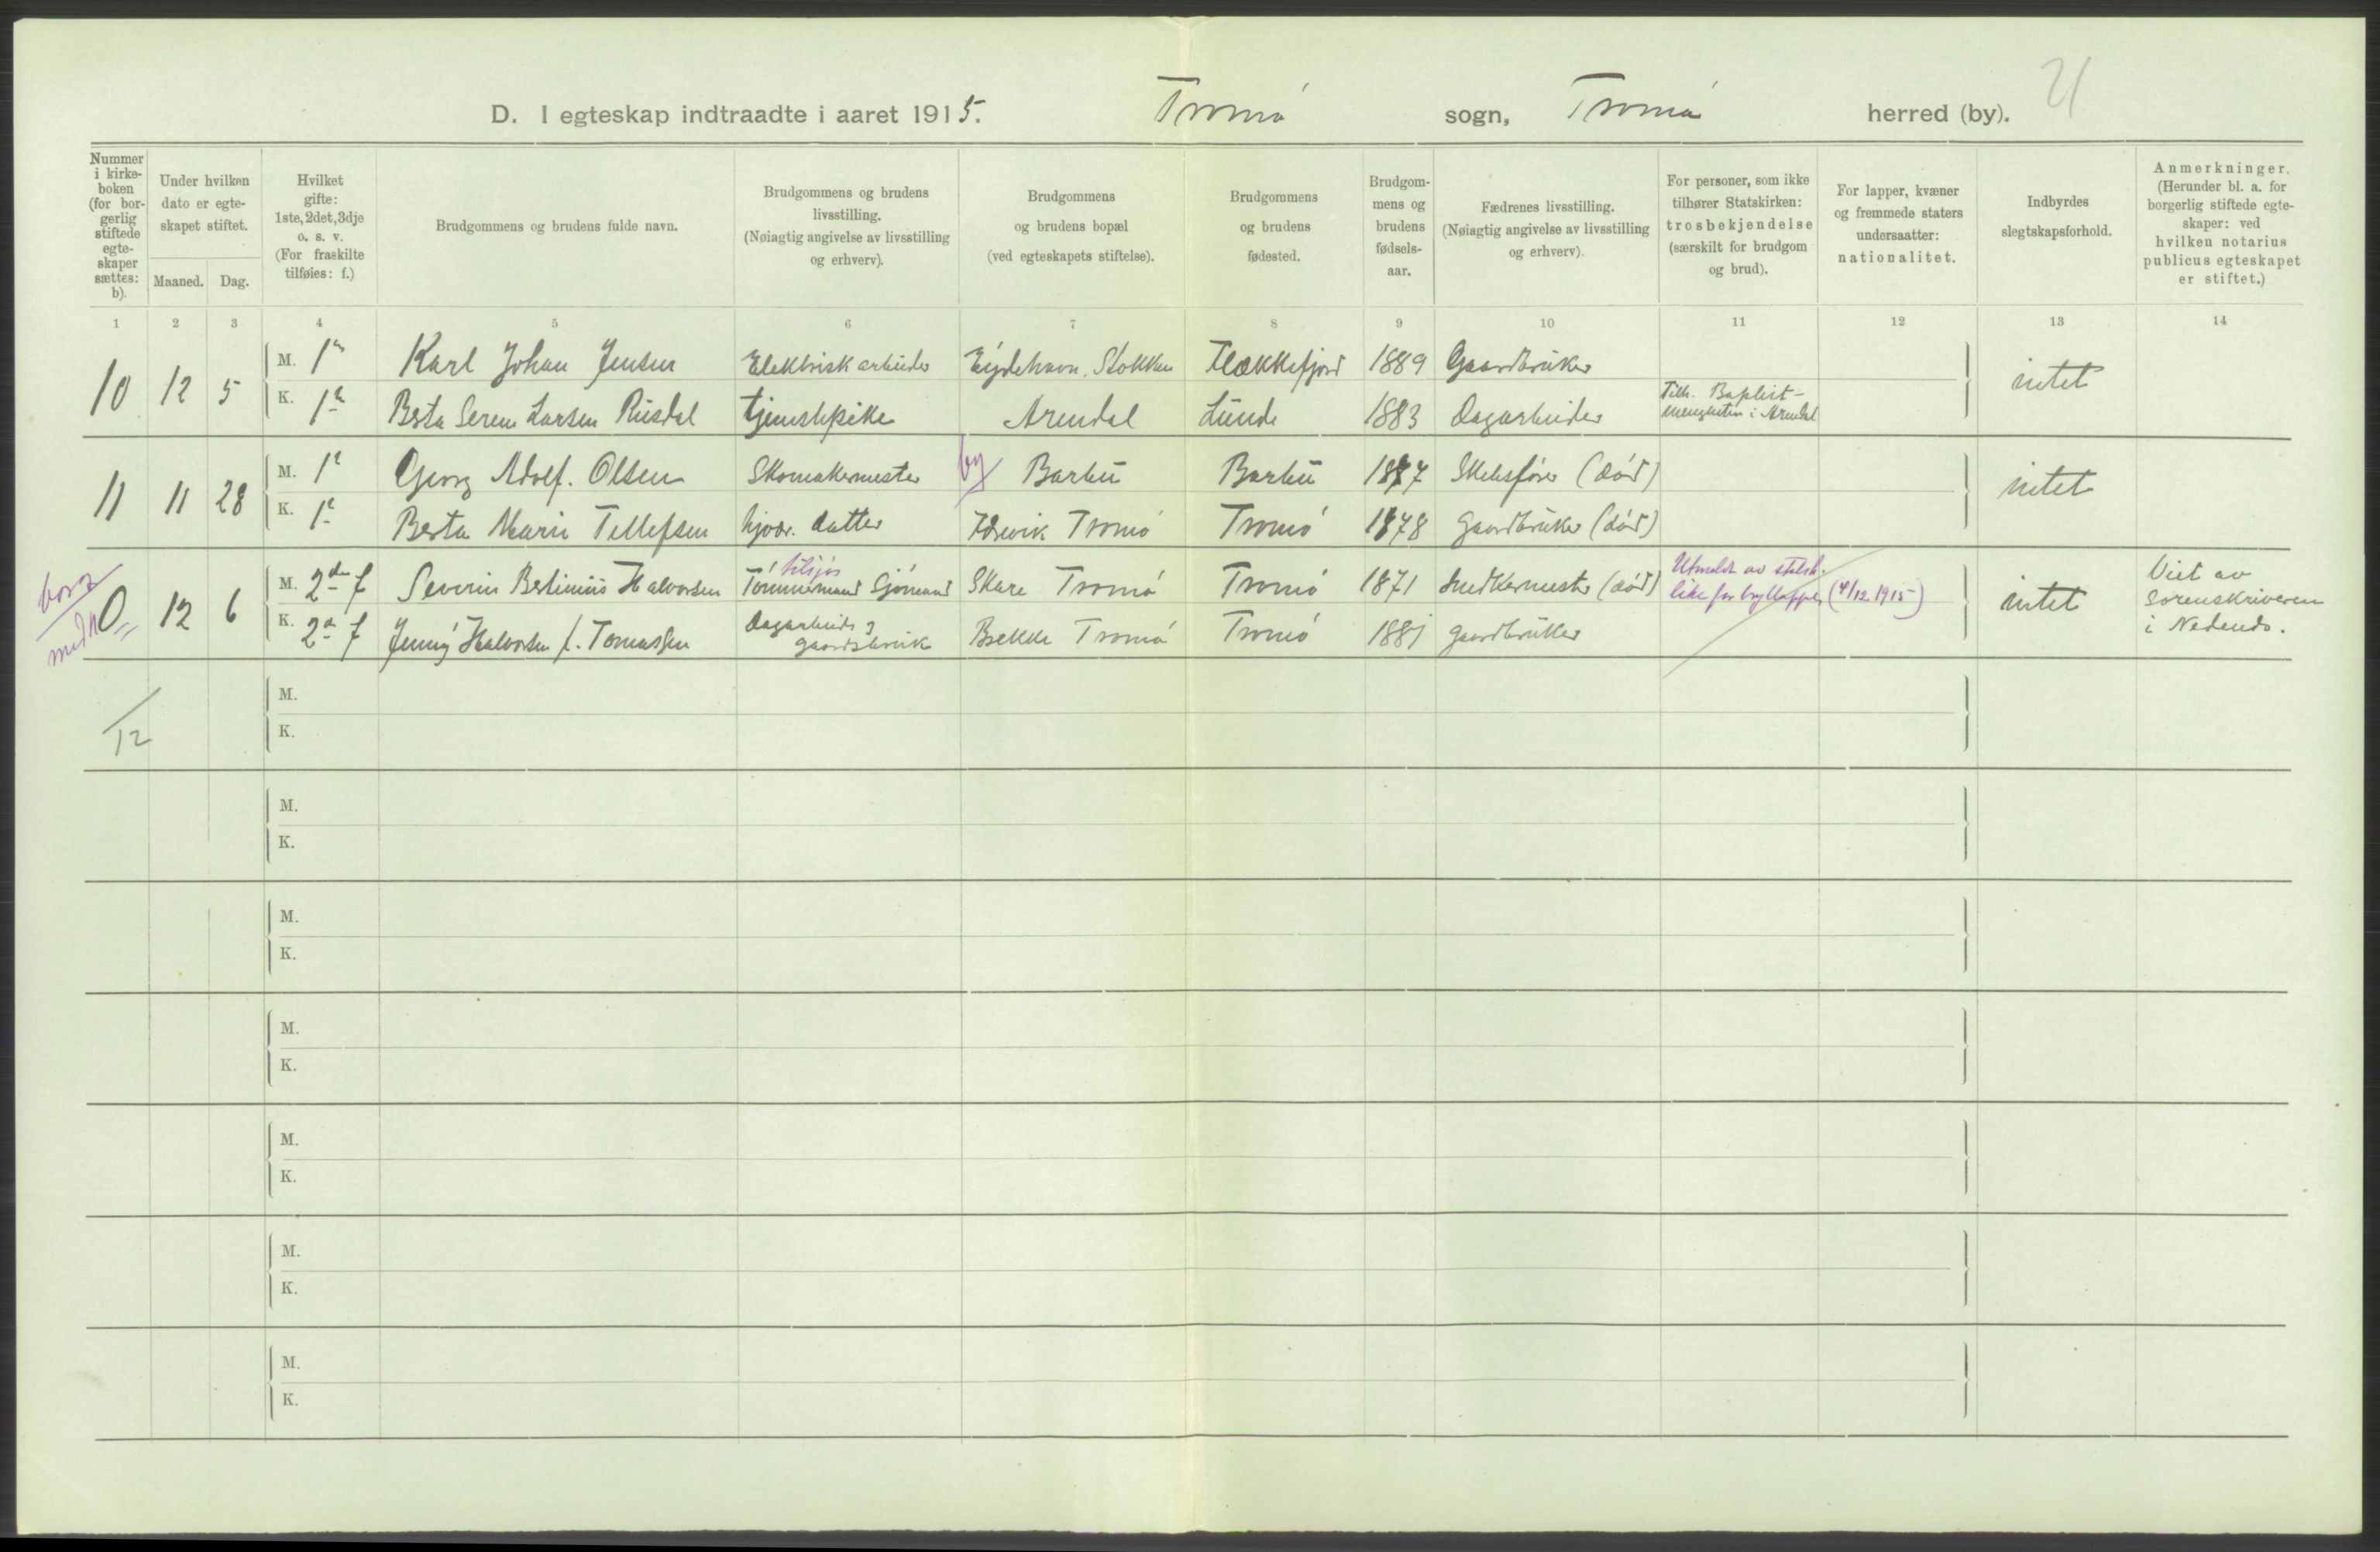 D. I egteskap indtraadte i aaret 1915. Tromö sogn, Tromö herred (by). 21
Nummer i kirke-boken (for bor-gerlig stiftede egte-skaper sættes: b).
Under hvilken dato er egte-skapet stiftet.
Maaned. Dag.
Hvilket gifte: 1ste, 2det, 3dje o. s. v. (For fraskilte tilføies: f.)
Brudgommens og brudens fulde navn.
Brudgommens og brudens livsstilling. (Nøiagtig angivelse av livsstilling og erhverv).
Brudgommens og brudens bopæl (ved egteskapets stiftelse).
Brudgommens og brudens fødested.
Brudgom-mens og brudens fødsels-aar.
Fædrenes livsstilling. (Nøiagtig angivelse av livsstilling og erhverv).
For personer, som ikke tilhører Statskirken: trosbekjendelse (særskilt for brudgom og brud).
For lapper, kvæner og fremmede staters undersaatter: nationalitet.
Indbyrdes slegtskapsforhold.
Anmerkninger. (Herunder bl. a. for borgerlig stiftede egte-skaper: ved hvilken notarius publicus egteskapet er stiftet.)
1 2 3 4 5 6 7 8 9 10 11 12 13 14
10 12 5 M. 1e Karl Johan Jensen Elektrisk arbeider Eydehavn. Stokken Flekkefjord 1889 Gaardbruker intet
K. 1e Berta Serene Larsen Rusdal tjenestepike Arendal Lunde 1883 Dagarbeider Tilh. Baptist-
menigheten i Arendal
11 11 28 M. 1e Georg Adolf. Olsen Skomakermester by Barbu Barbu 1877 Skibsfører (död) intet
K. 1e Berta Marie Tellefsen hjvær. datter Tromö Tromö 1878 Gaardbruker (död)
borg
0 12 6 M. 2de f Severin Bertinius Halvorsen Tömmermand Sjömand Skare Tromö Tromö 1871 Snedkermester (död) Utmeldt av statsk.
like før brylluppet (4/12 1915) intet
K. 2de f Jenny Halvorsen f. Tomassen Dagarbeide &
gaardsbruk Brekke Tromö Tromö 1881 gaardbruker
Viet av
Sorenskriveren
i Nedenes.
12
M.
K.
M.
K.
M.
K.
M.
K.
M.
K.
M.
K.
M.
K.